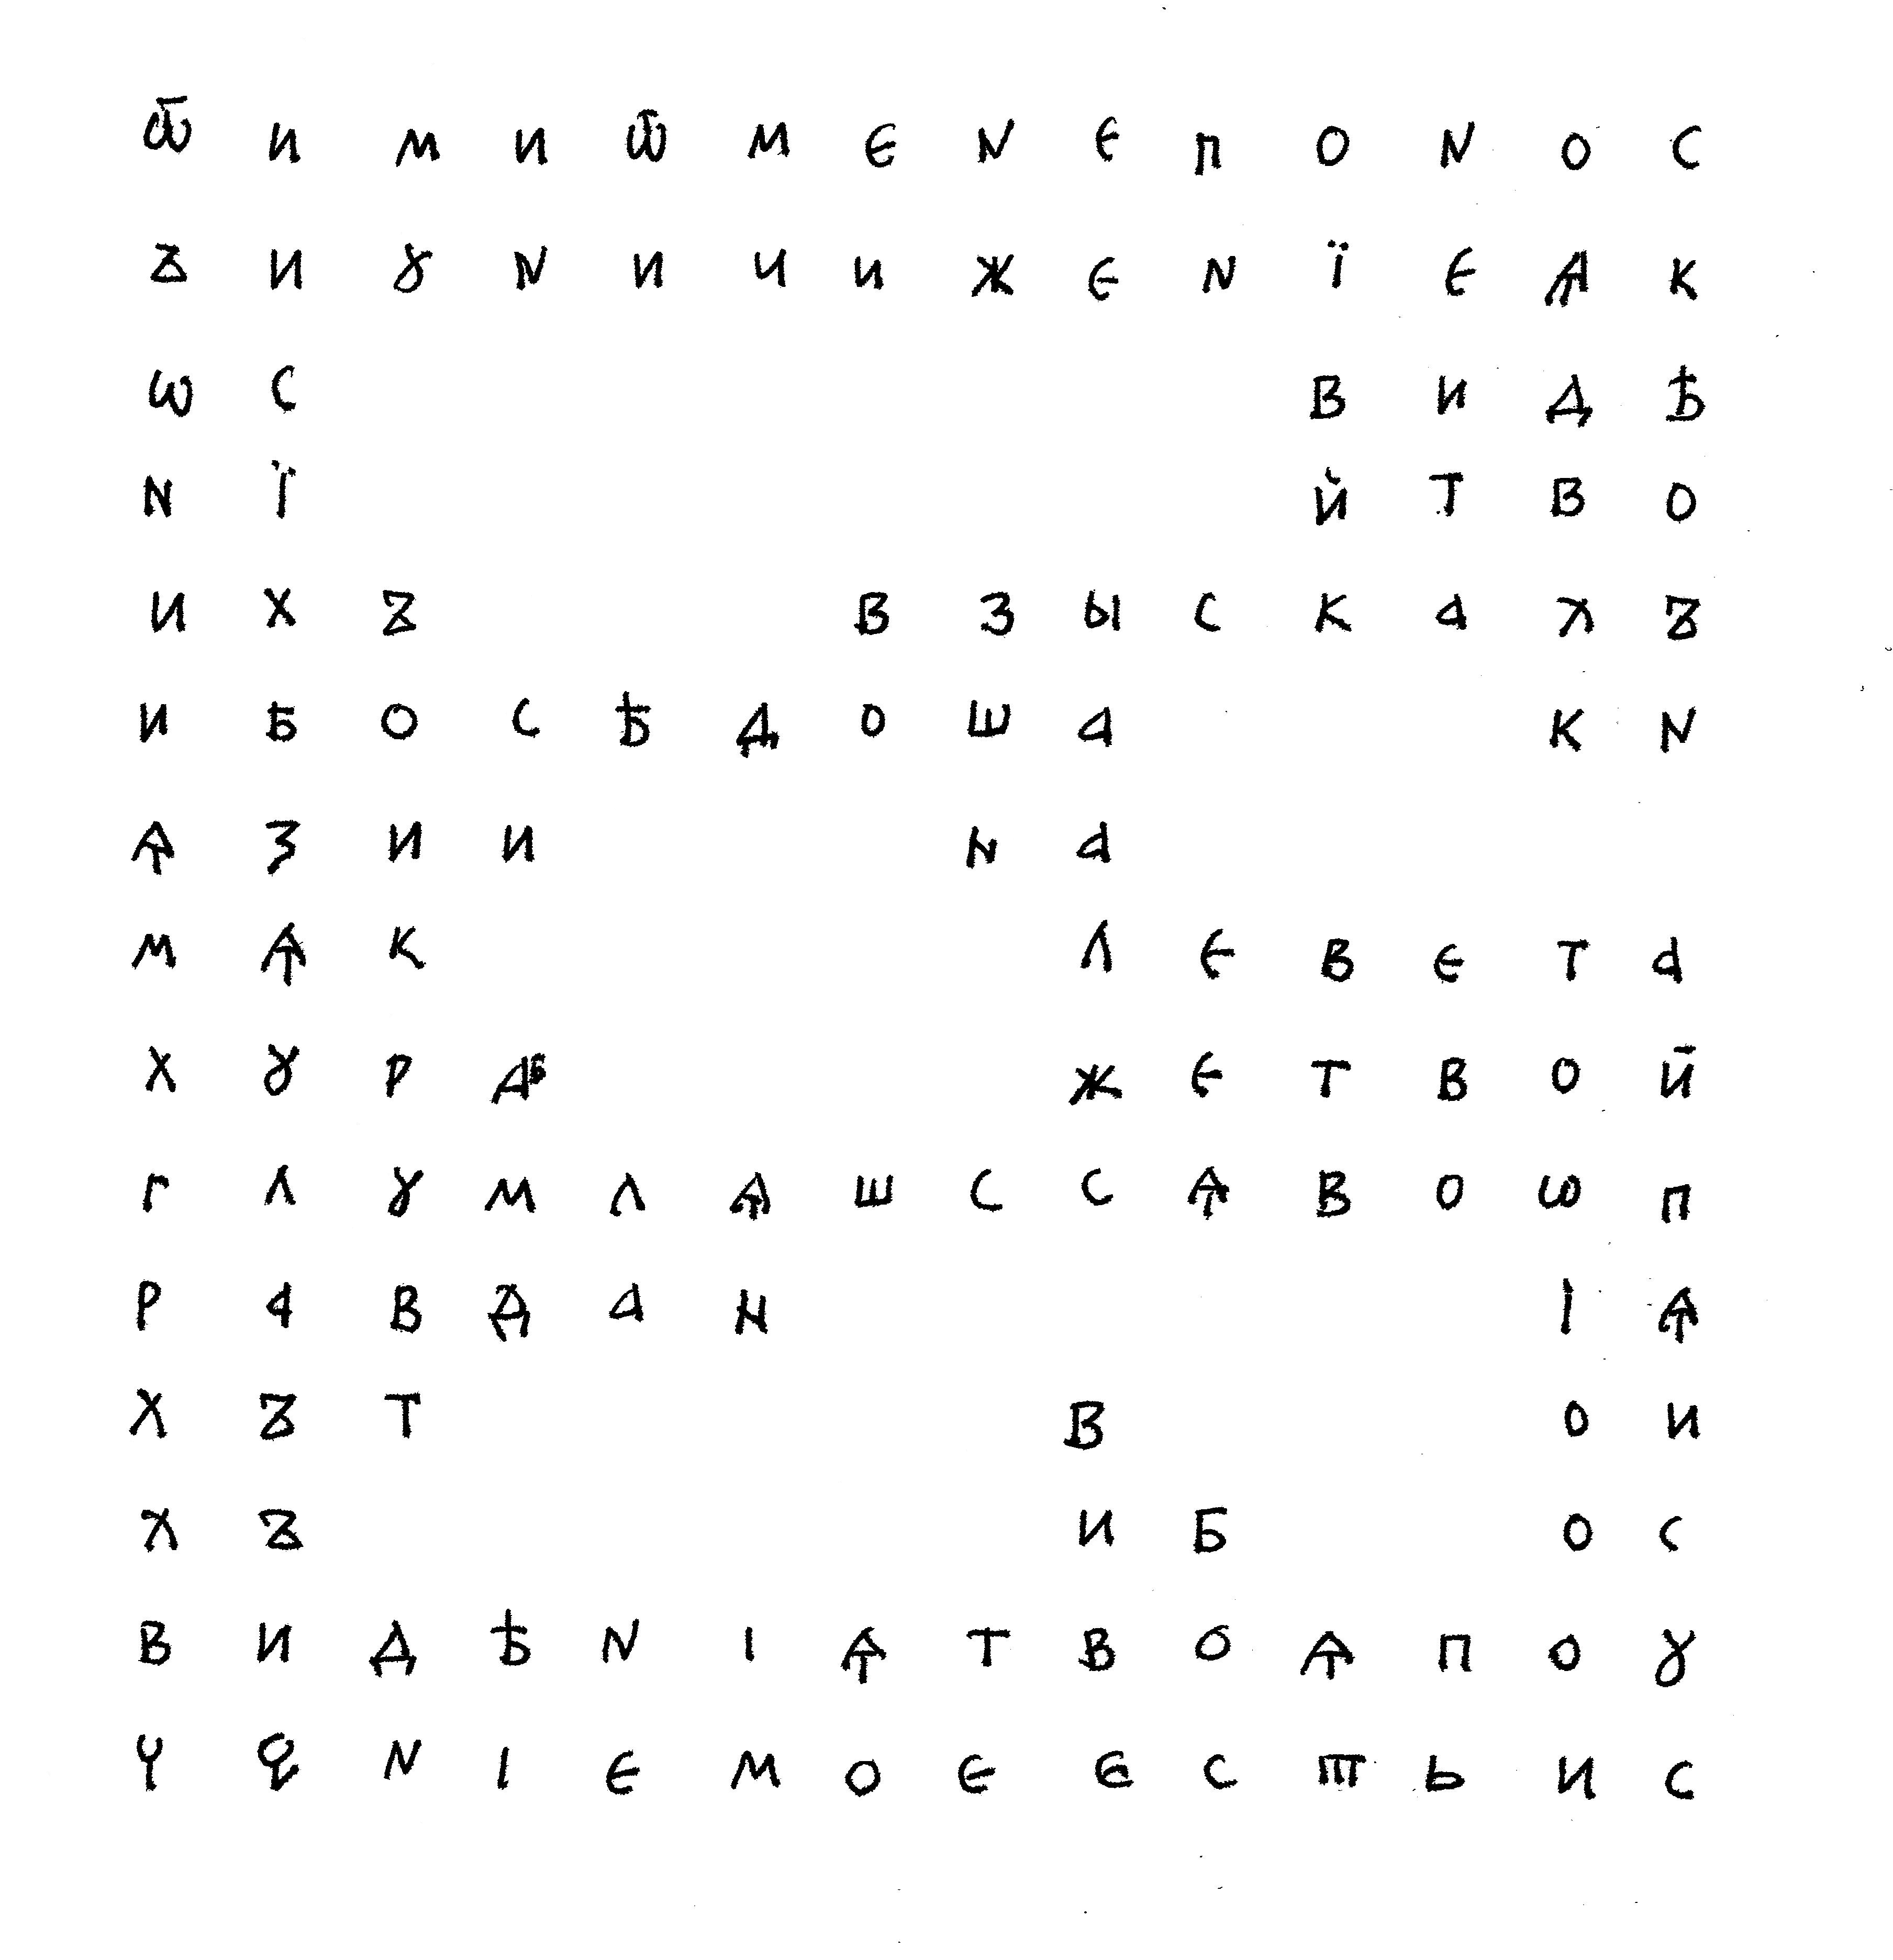 Ѿ И М И Ѿ М Є N Є П О N О С
Ъ И Ꙋ N И Ч И Ж Є N Ї Є Ѧ К
Ѡ С В И Д Ѣ
N Ї Й Т В О
И Х Ъ В З Ы С К А Х Ъ
И Б О С Ѣ Д О Ш А К N
Ѧ З И И Н А
М Ѧ К Л Є В Є Т А
Х Ꙋ Р А Б Ж Є Т В О Й
Г Л Ꙋ М Л Ѧ Ш С С Ѧ В О Ѡ П
Р А В Д А Н І Ѧ
Х Ъ Т В О И
Х Ъ И Б О С
В И Д Ѣ N І Ѧ Т В О Ѧ П О Ꙋ
Ч Є N І Є М О Є Є С Т Ь И С